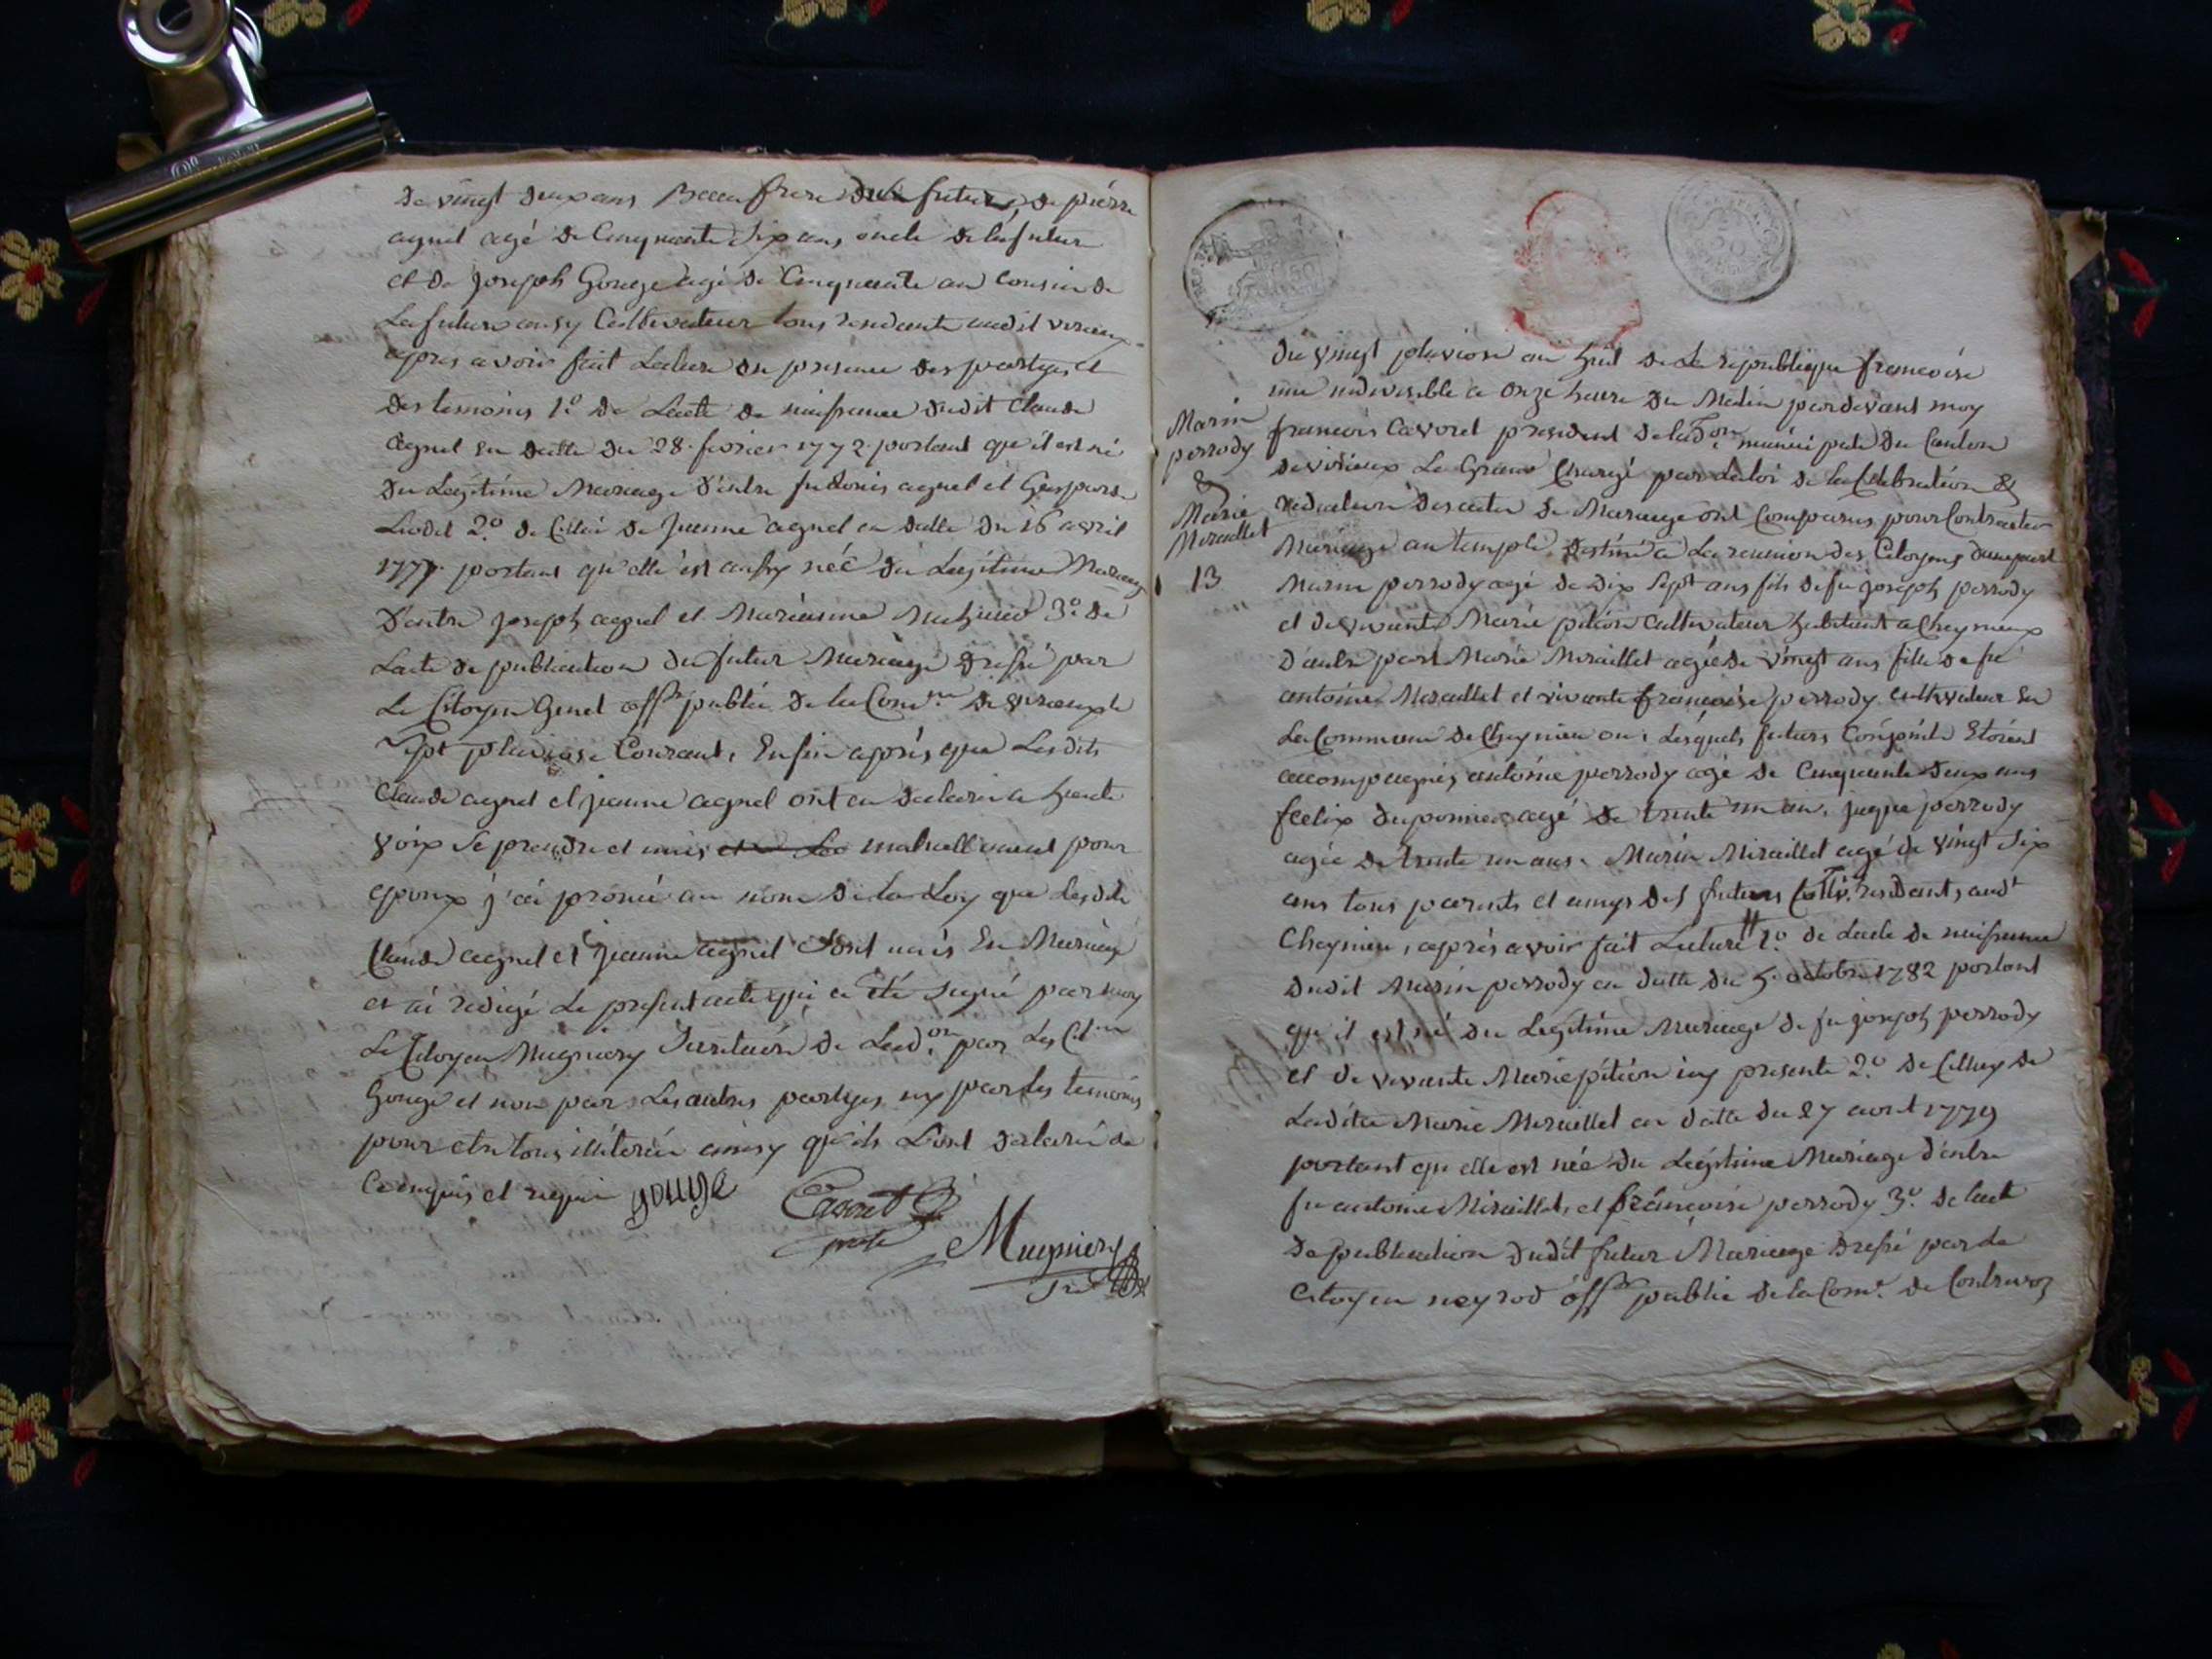 de vingt deux ans Beaufrere de la future, de pierre
agnel agé de Cinquante Six ans, oncle de la future
et de joseph Gouge agé de Cinquante ans cousin de
La future aussy Cultivateur tous residents audit virieux
apres avoir fait Lecture en presence des partyes et
des temoins 1.o de Lacte de naissance dudit Claude
agnel en datte du 28. fevrier 1772 portant qu'il est né
du Legitime Mariage d'entre fu agnel et Gasparde
Liodet 2.o de Cellui de jeanne agnel en datte du 16 avril
1777. portant qu'elle est aussy née du Legitime Mariage
D'entre joseph agnel et Marianne 3.o de
Lacte de publication du futur Mariage dressé par
Le Citoyen Genet offer public de la Comne de virieux le
Sept pluviose Courant, Enfin après que Lesdits
Claude agnel et jeanne agnel ont eu declaré a haute
voix Se prendre et mutuellement pour
epoux j'ai prononcé au nome de la Loy que lesdits
Claude agnel et jeanne agnel Sont unis En Mariage
et ai redigé Le present acte qui a été signé par moy
Le Citoyen Mugniery Secretaire de Ladon par Les Citen
Gouge et non par Les autres partyes ny par les temoins
pour etre tous illiterés ainsy qu'ils L'ont declaré de
Ce enquis et requis gouge
Cavoret
Mugniery
du vingt pluviose an huit de La republique francoise
une indivisible a onze heure du Matin pardevant moy
francois Cavoret president de ladon municipale du Canton
de virieux Le Grand Chargé par la loi de la Celebration &
redaction des actes de Mariage ont Comparus pour Contracter
Mariage au temple destiné a La reunion des Citoyens dune part
Marin
perrody
&
Marie
Miraillet
13
Marin perrody agé de dix Sept ans fils de fu joseph perrody
et de vivante Marie pition Cultivateur habitant a Cheynieux
d'autre part Marie Miraillet agée de vingt ans fille de fu
antoine Miraillet et vivante francoise perrody cultivateur En
La Commune de Cheynieu Lesquels futurs Conjoints Etoient
accompagnés antoine perrody agé de Cinquante deux ans
felix duponier agé de trente un an, jaque perrody
agée de trente un ans, Marin Miraillet agé de vingt Six
ans tous parents et amys des futurs Cultiv. residents audt
Cheynieu, après avoir fait Lecture 1.o de Lacte de naissance
dudit Marin perrody en datte du 5. octobre 1782 portant
qu'il est né du Legitime Mariage de fu joseph perrody
et de vivante Marie pition icy presente 2.o de Celluy de
Ladite Marie Miraillet en datte du 27 aout 1779
portant qu'elle est née du Legitime Mariage d'entre
fu antoine Miraillet, et francoise perrody 3.o de lact
de publication dudit futur Mariage dressé par le
Citoyen neyrod offer public de la Come de Contrevoz